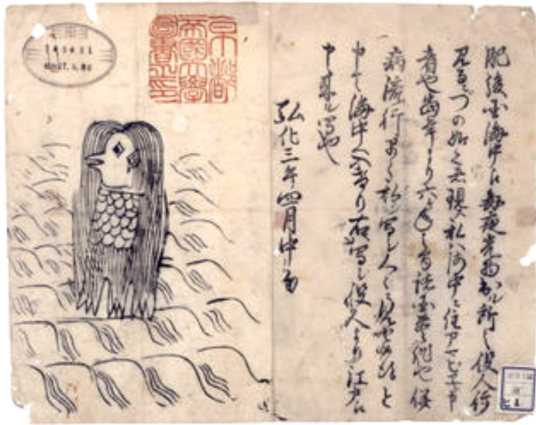 肥後国海中え毎夜光物出ル所之役人行
見るニづの如之者現ス私ハ海中ニ住アマビヱト申
者也当年より六ヶ年之間諸国豊作也併
病流行早々私シ写シ人々ニ見せ候得と
申て海中へ入けり右写シ役人より江戸え
申来ル写也
弘化三年四月中旬
京都
帝國大學
圖書之印